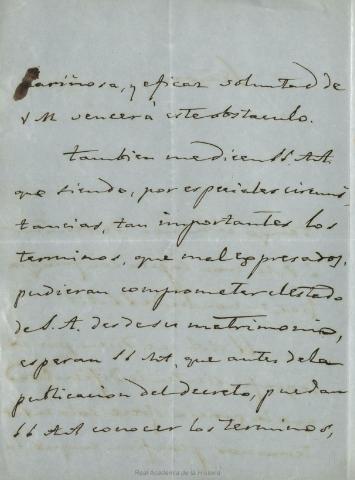 cariñosa, y eficaz voluntad de
V M vencerá este obstaculo.
Tambien me dicen SS. AA.
que siendo, por especiales circuns
tancias, tan importantes los
terminos, que mal expresados,
pudieran comprometer el estado
de S. A. desde su matrimonio,
esperan SS AA. que antes de la
publicacion del decreto, puedan
SS AA conocer los terminos,
Real Academia de la Historia